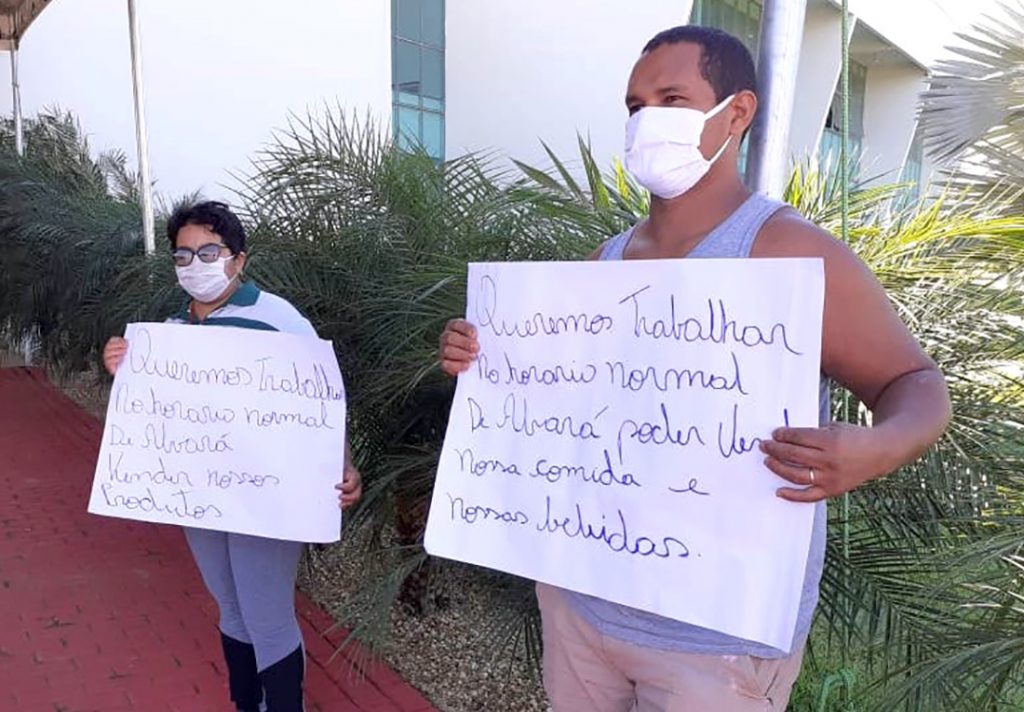 Queremos Trabalhar
No horario normal
De Alvará
Vender nossos
Produtos
Queremos Trabalhar
No horario normal
De Alvará poder
Nossa comida e
Nossas bebidas.